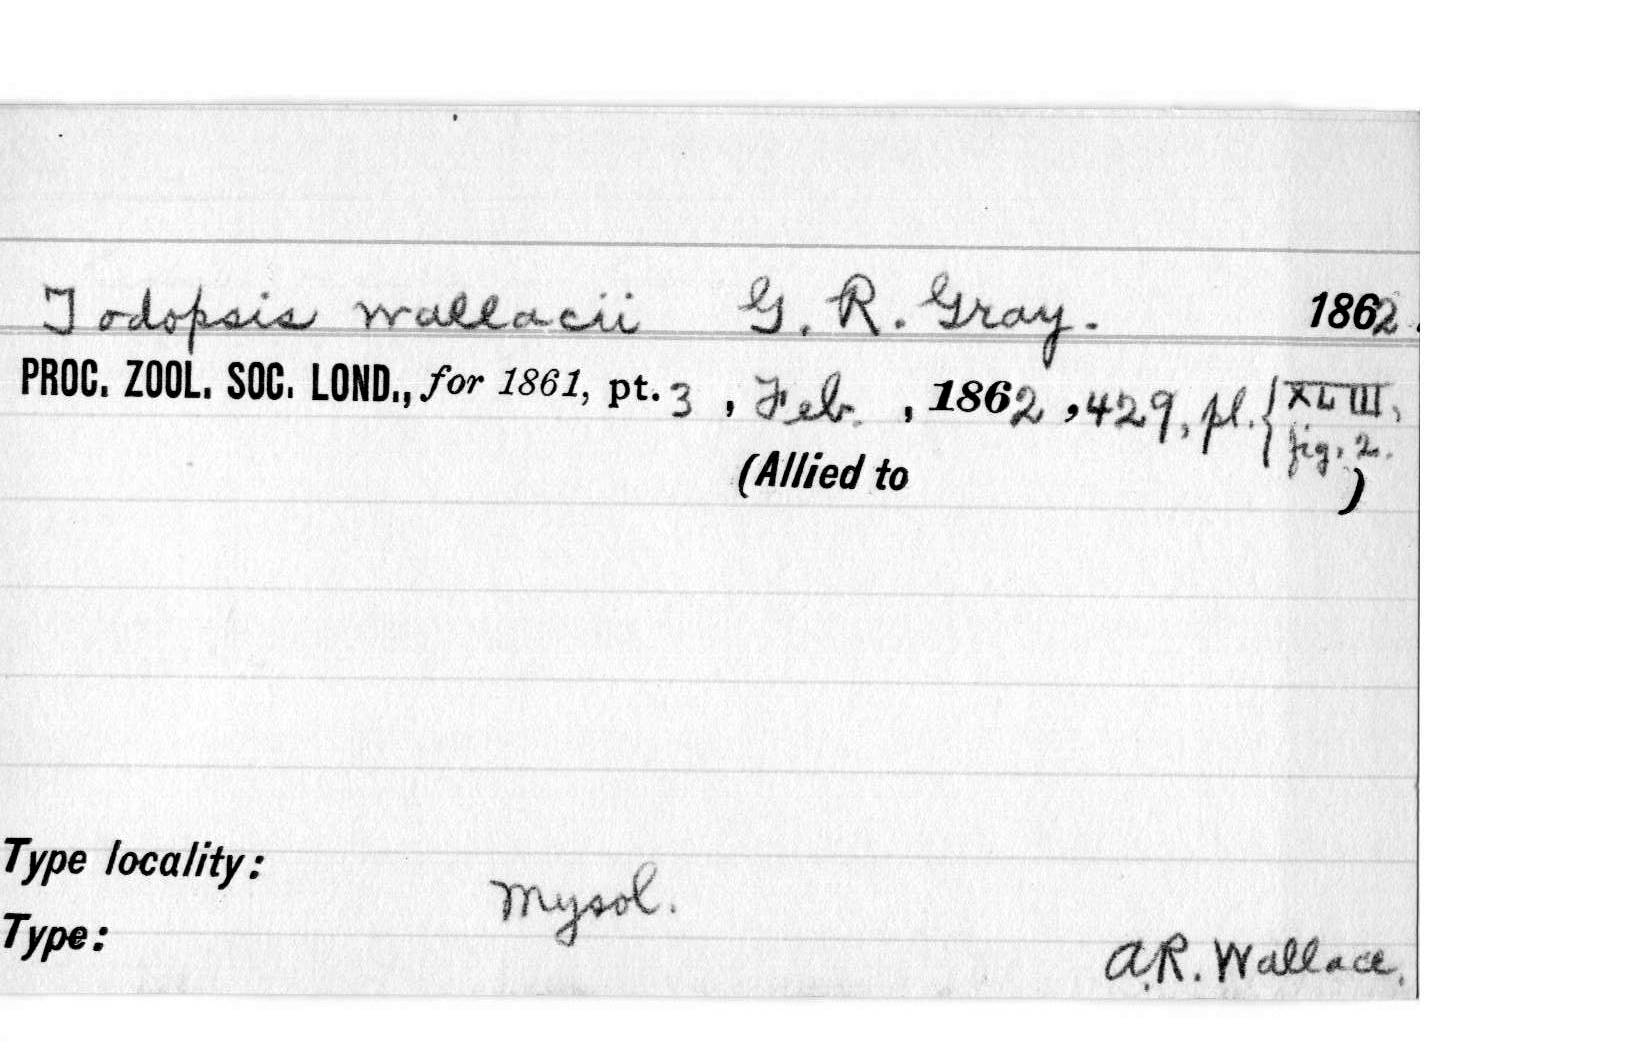 Todopsis wallacii G. R. Gray. 1862.
PROC. ZOOL. SOC. LOND., for 1861, pt. 3, Feb. , 1862, 429, pl. { XLIII,
fig. 2.
(Allied to )
Type locality:
Mysol.
Type:
A.R. Wallace.